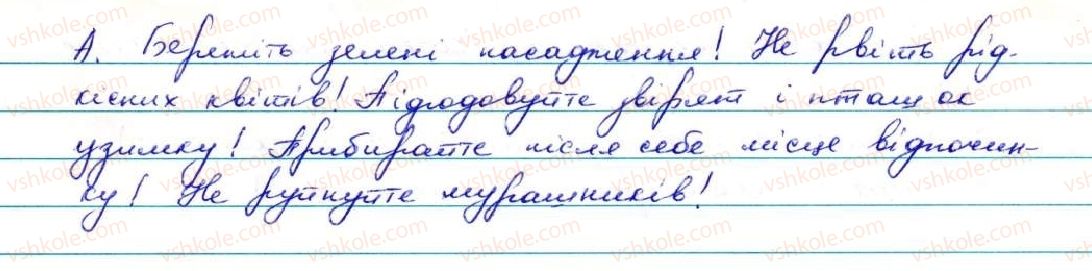 А. Бережіть зелені насадження! Не рвіть рід-
кісних квітів! Підгодовуйте звірят і пташок
узимку! Прибирайте після себе місце відпочин-
ку! Не руйнуйте мурашників!
vshkole.com